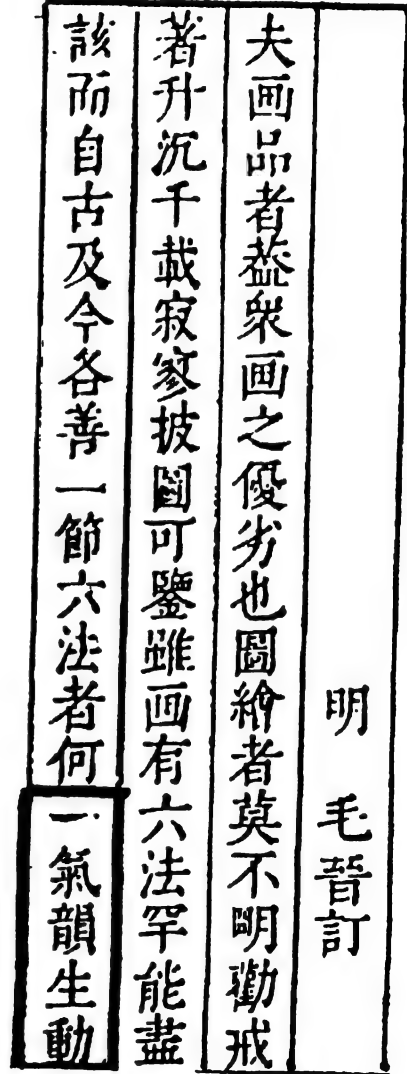 明 毛晉訂
夫画品者葢衆画之優劣也圖繪者莫不明勸戒
著升沉千載寂寥披圖可鑒雖画有六法罕能盡
該而自古及今各善一節六法者何一氣韻生動